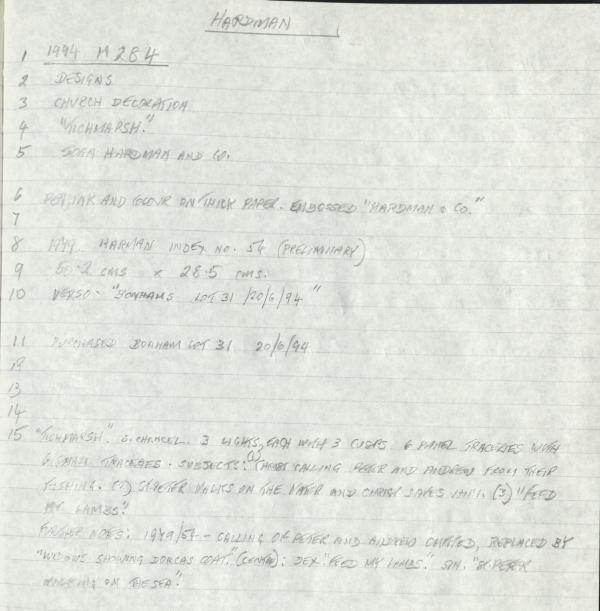 HARDMAN
1 1994 M 284
2 DESIGNS
3 CHURCH DECORATION
4 "TICHMARSH."
5 JOHN HARDMAN AND CO.
6 PEN, INK AND COLOUR ON THICK PAPER. EMBOSSED "HARDMAN & CO."
7
8 1949. HARDMAN INDEX NO. 54 (PRELIMINARY)
9 50.2 CMS × 28.5 CMS.
10 VERSO- "BONHAMS LOT 31 /20/6/94"
11 PURCHASED BONHAM LOT 31 20/6/94
12
13
14
15 "TICHMARSH". S. CHANCEL. 3 LIGHTS, EACH WITH 3 CUSPS. 6 PANEL TRACERIES WITH
6 SMALL TRACERIES. SUBJECTS: (1) CHRIST CALLING PETER AND ANDREW FROM THEIR
FISHING. (2) ST. PETER WALKS ON THE WATER AND CHRIST SAVES HIM. (3) "FEED
MY LAMBS."
FURTHER NOTES: 1949/54 - CALLING OF PETER AND ANDREW OMITTED, REPLACED BY
"WIDOWS SHOWING DORCAS COAT." (CENTRE): DEX "FEED MY LAMBS." SIN. "ST. PETER
WALKING ON THE SEA".